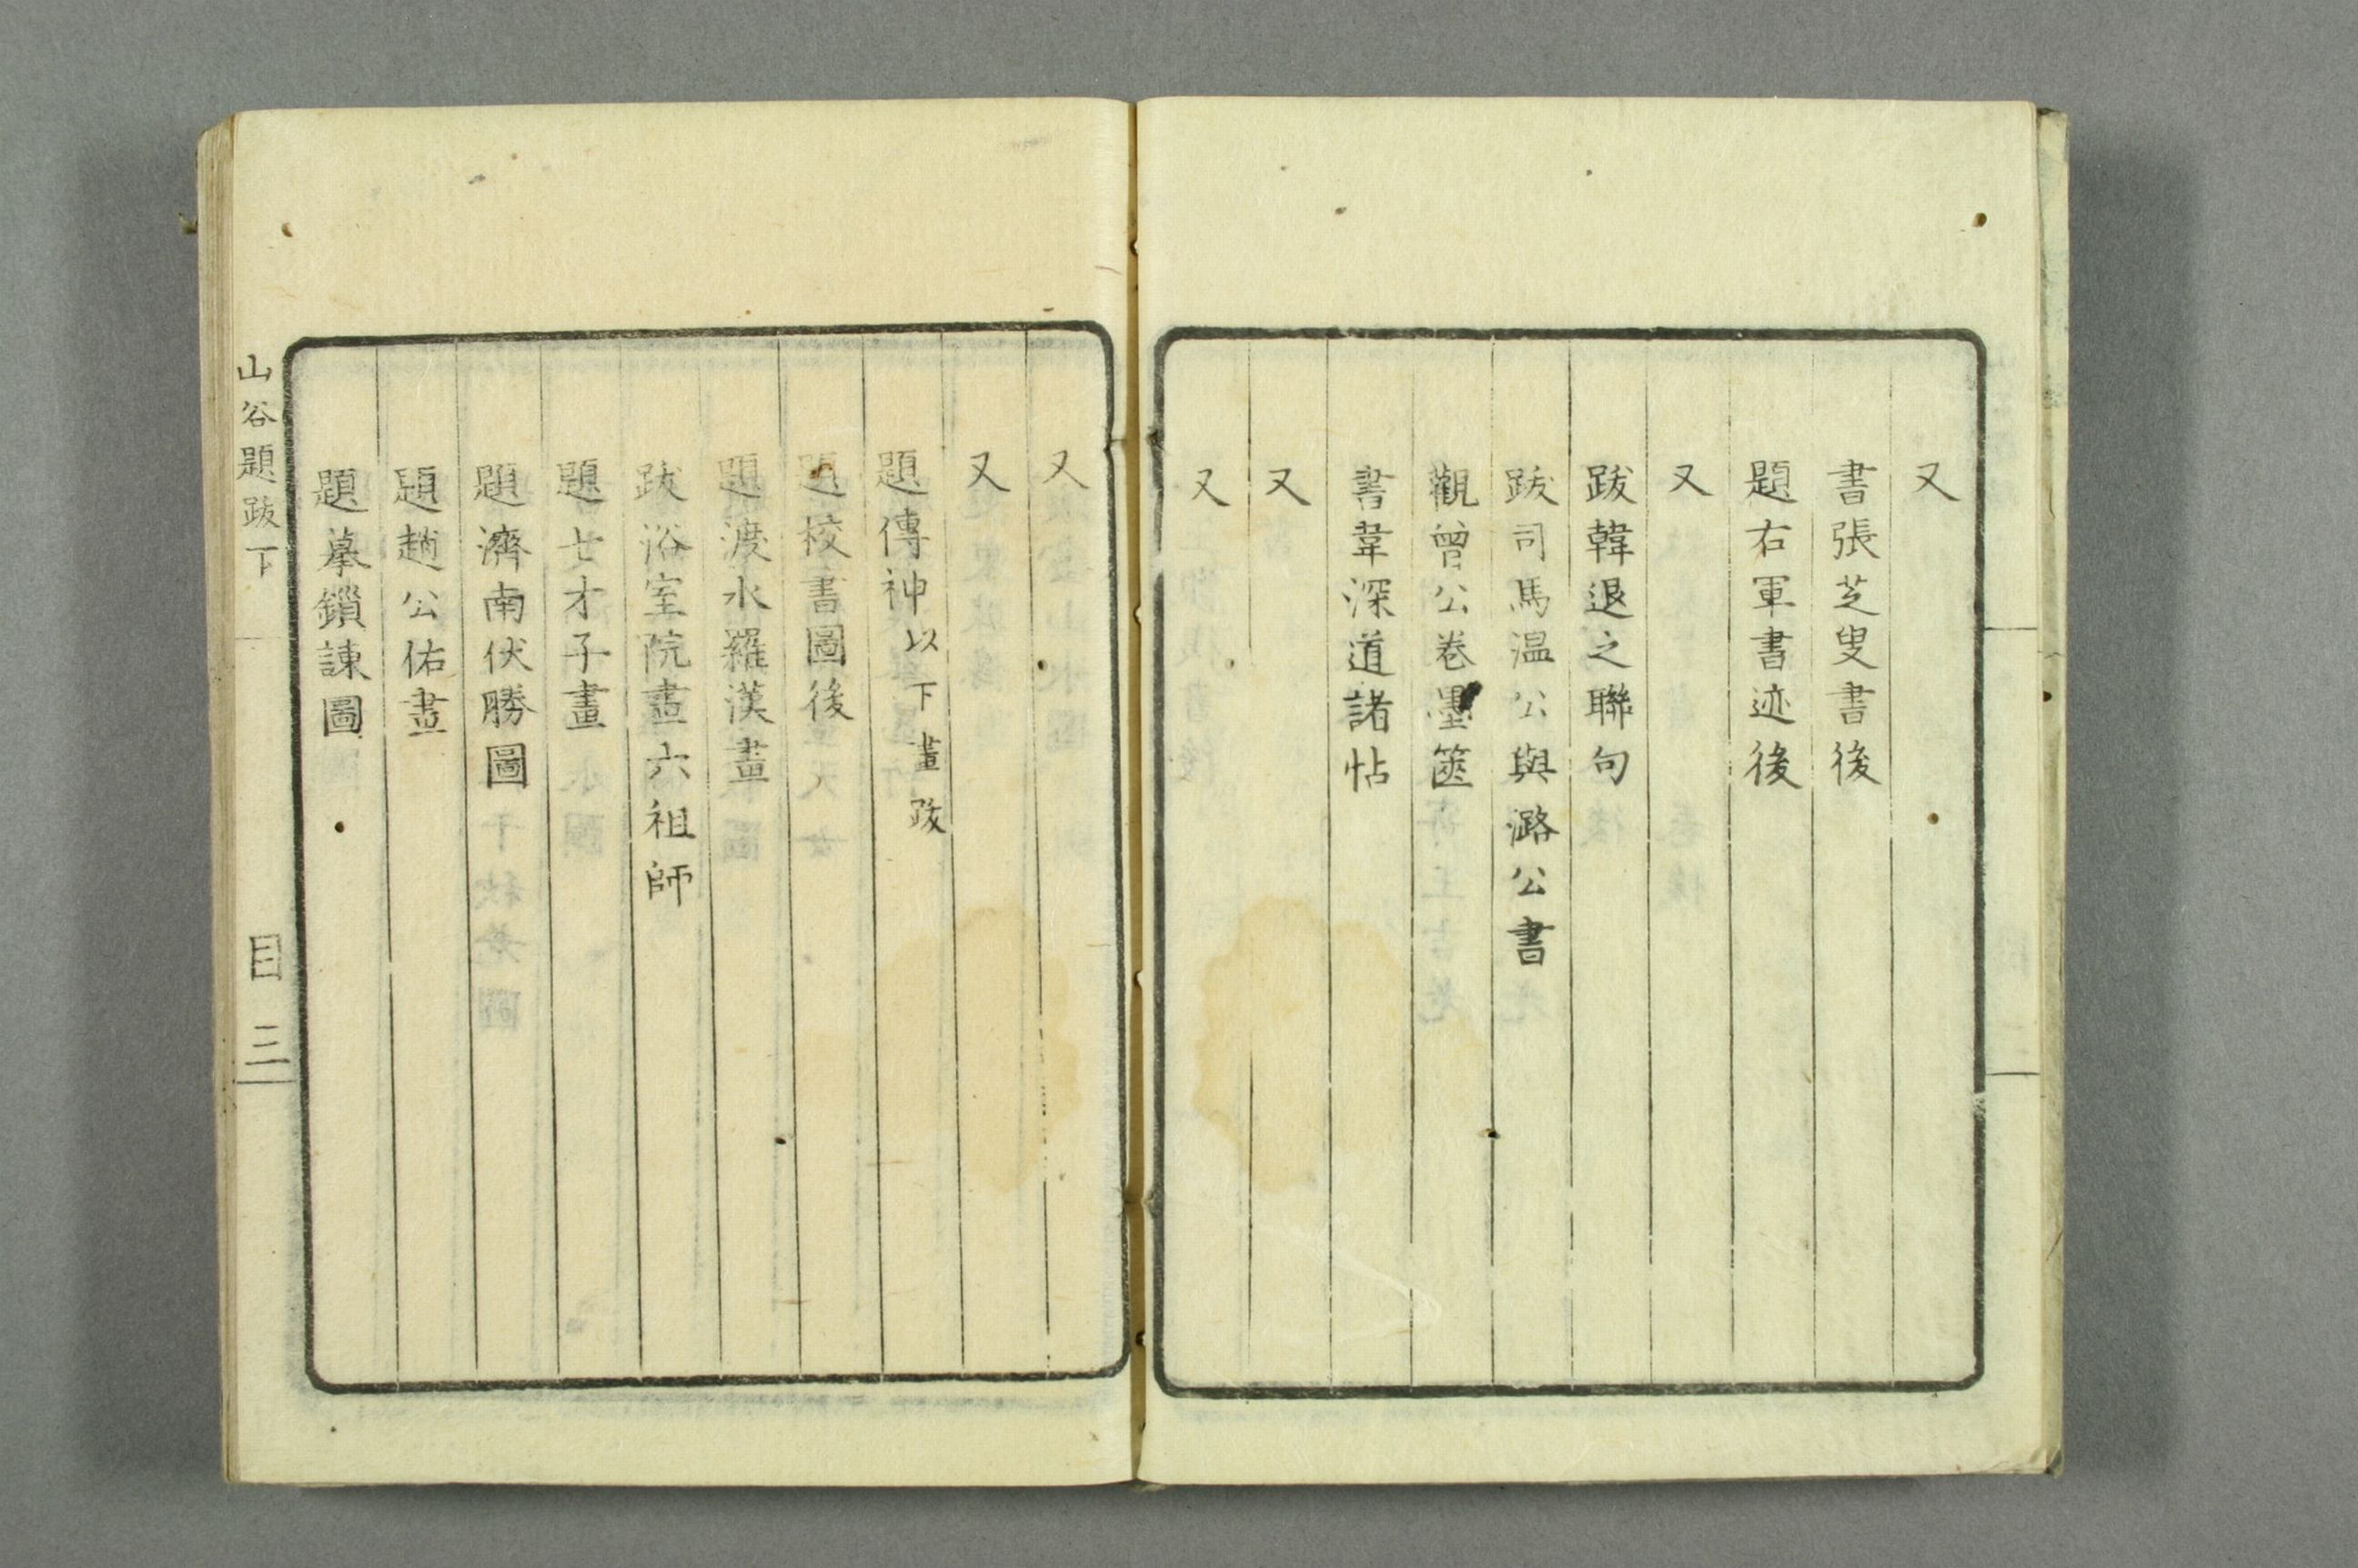 又
書張芝叟書後
題右軍書迹後
又
跋韓退之聯句
跋司馬温公與潞公書
觀曾公卷墨篋
書韋深道諸帖
又
又
又
又
題傳神以下畫跋
題校書圖後
題渡水羅漢畫
跋浴室院畫六祖師
題七才子畫
題濟南伏勝圖
題趙公佑畫
題摹鎖諫圖
山谷題跋下
目
三